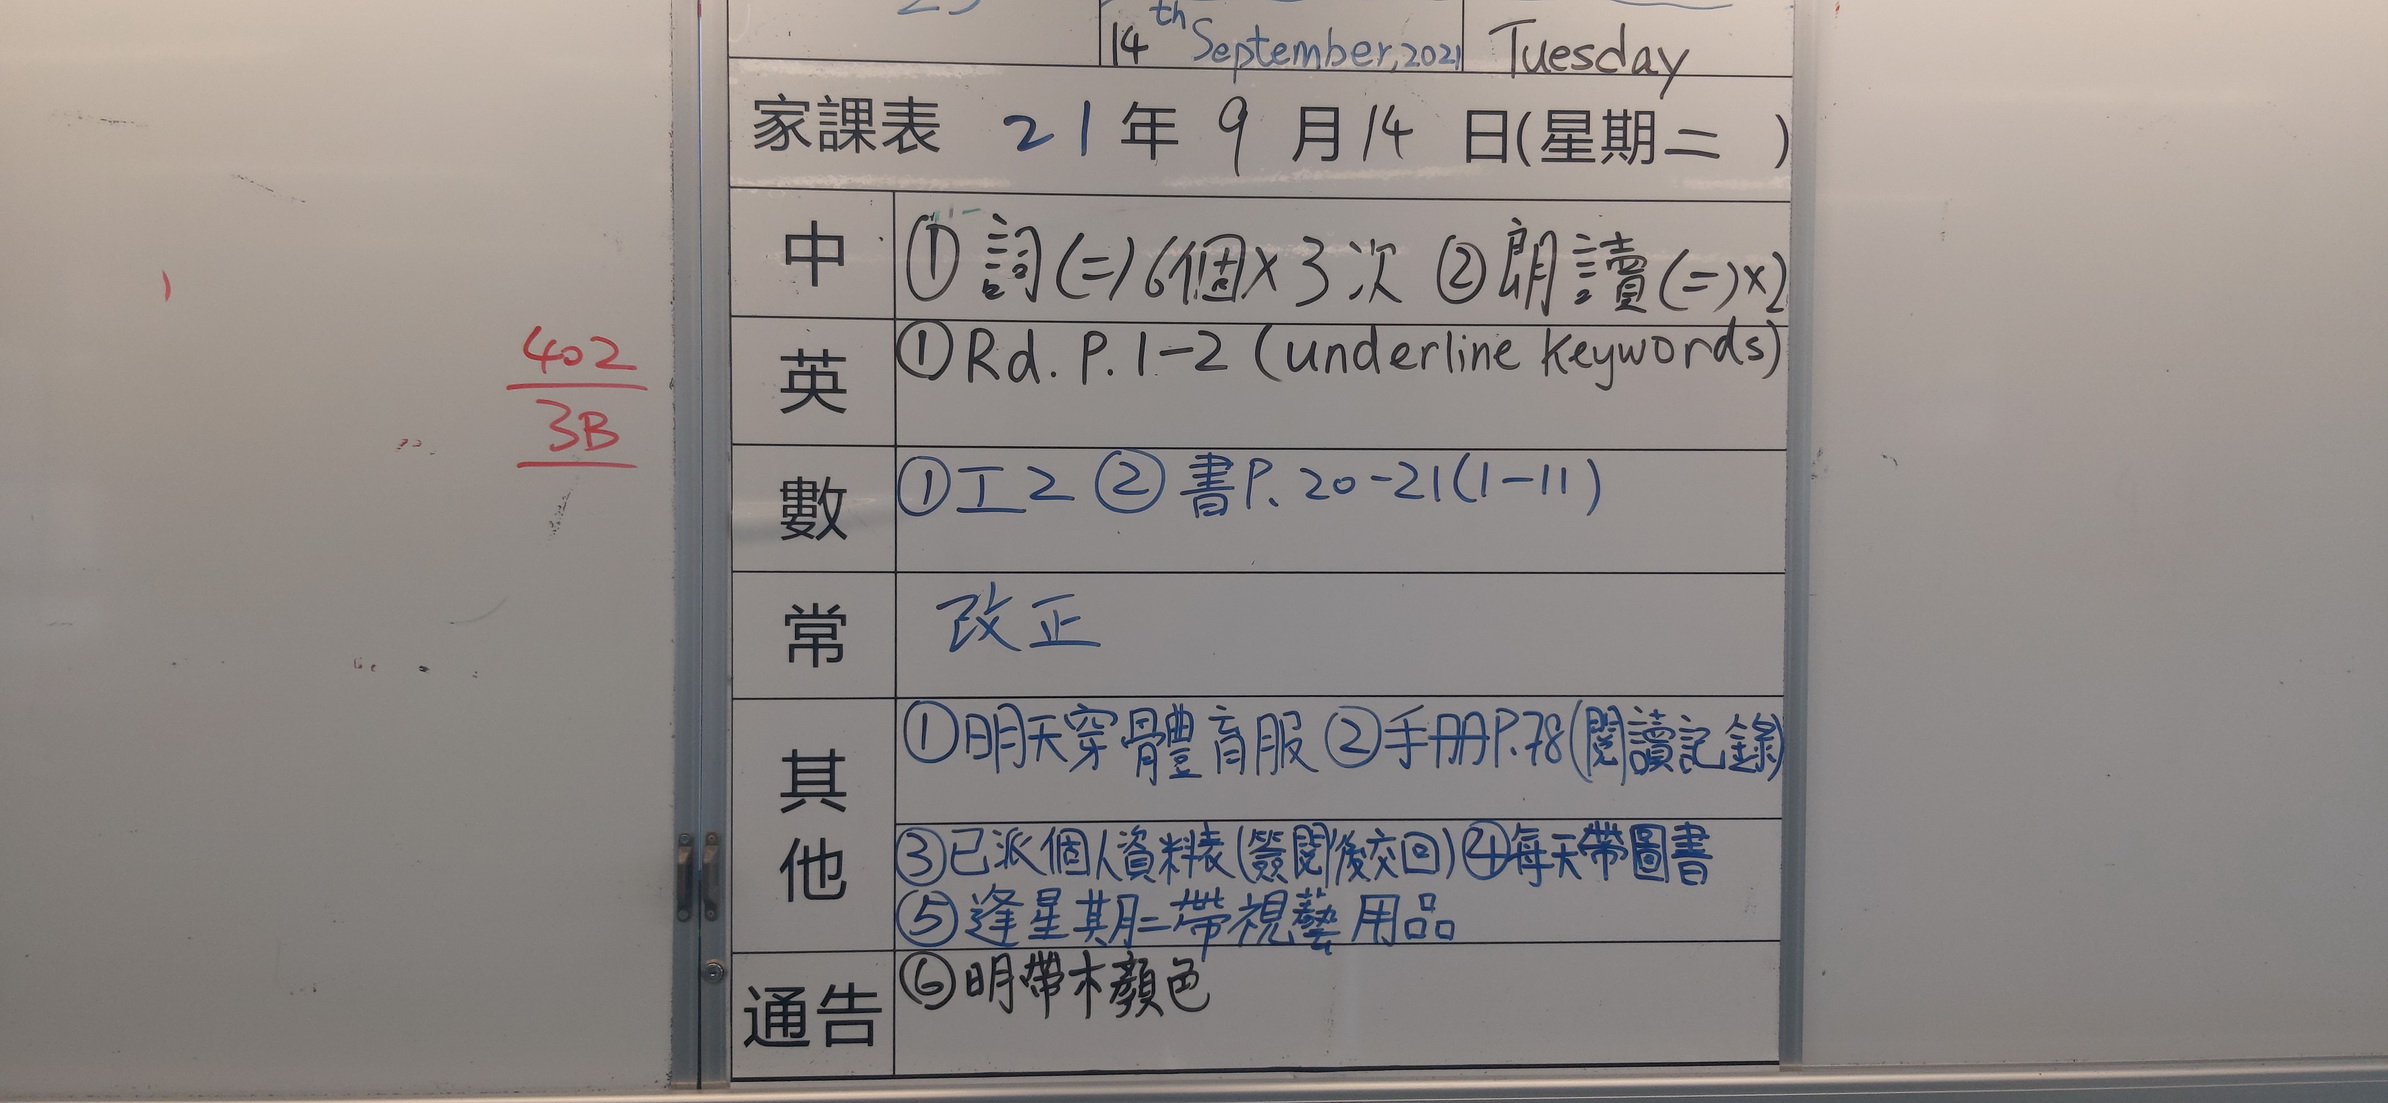 14th September, 2021 Tuesday
家課表 21 年 9 月 14 日(星期二 )
402
3B
中 ① 詞(二)6個×3次 ②朗讀(二)×2
英 ① Rd. P.1-2 (underline keywords)
數 ①工2 ② 書P. 20-21(1-11)
常 改正
其他 ①明天穿體育服 ②手冊P.78(閱讀記錄)
③已派個人資料表(簽閱後交回) ④每天帶圖書
⑤逢星期二帶視藝用品
通告 ⑥明帶木顏色